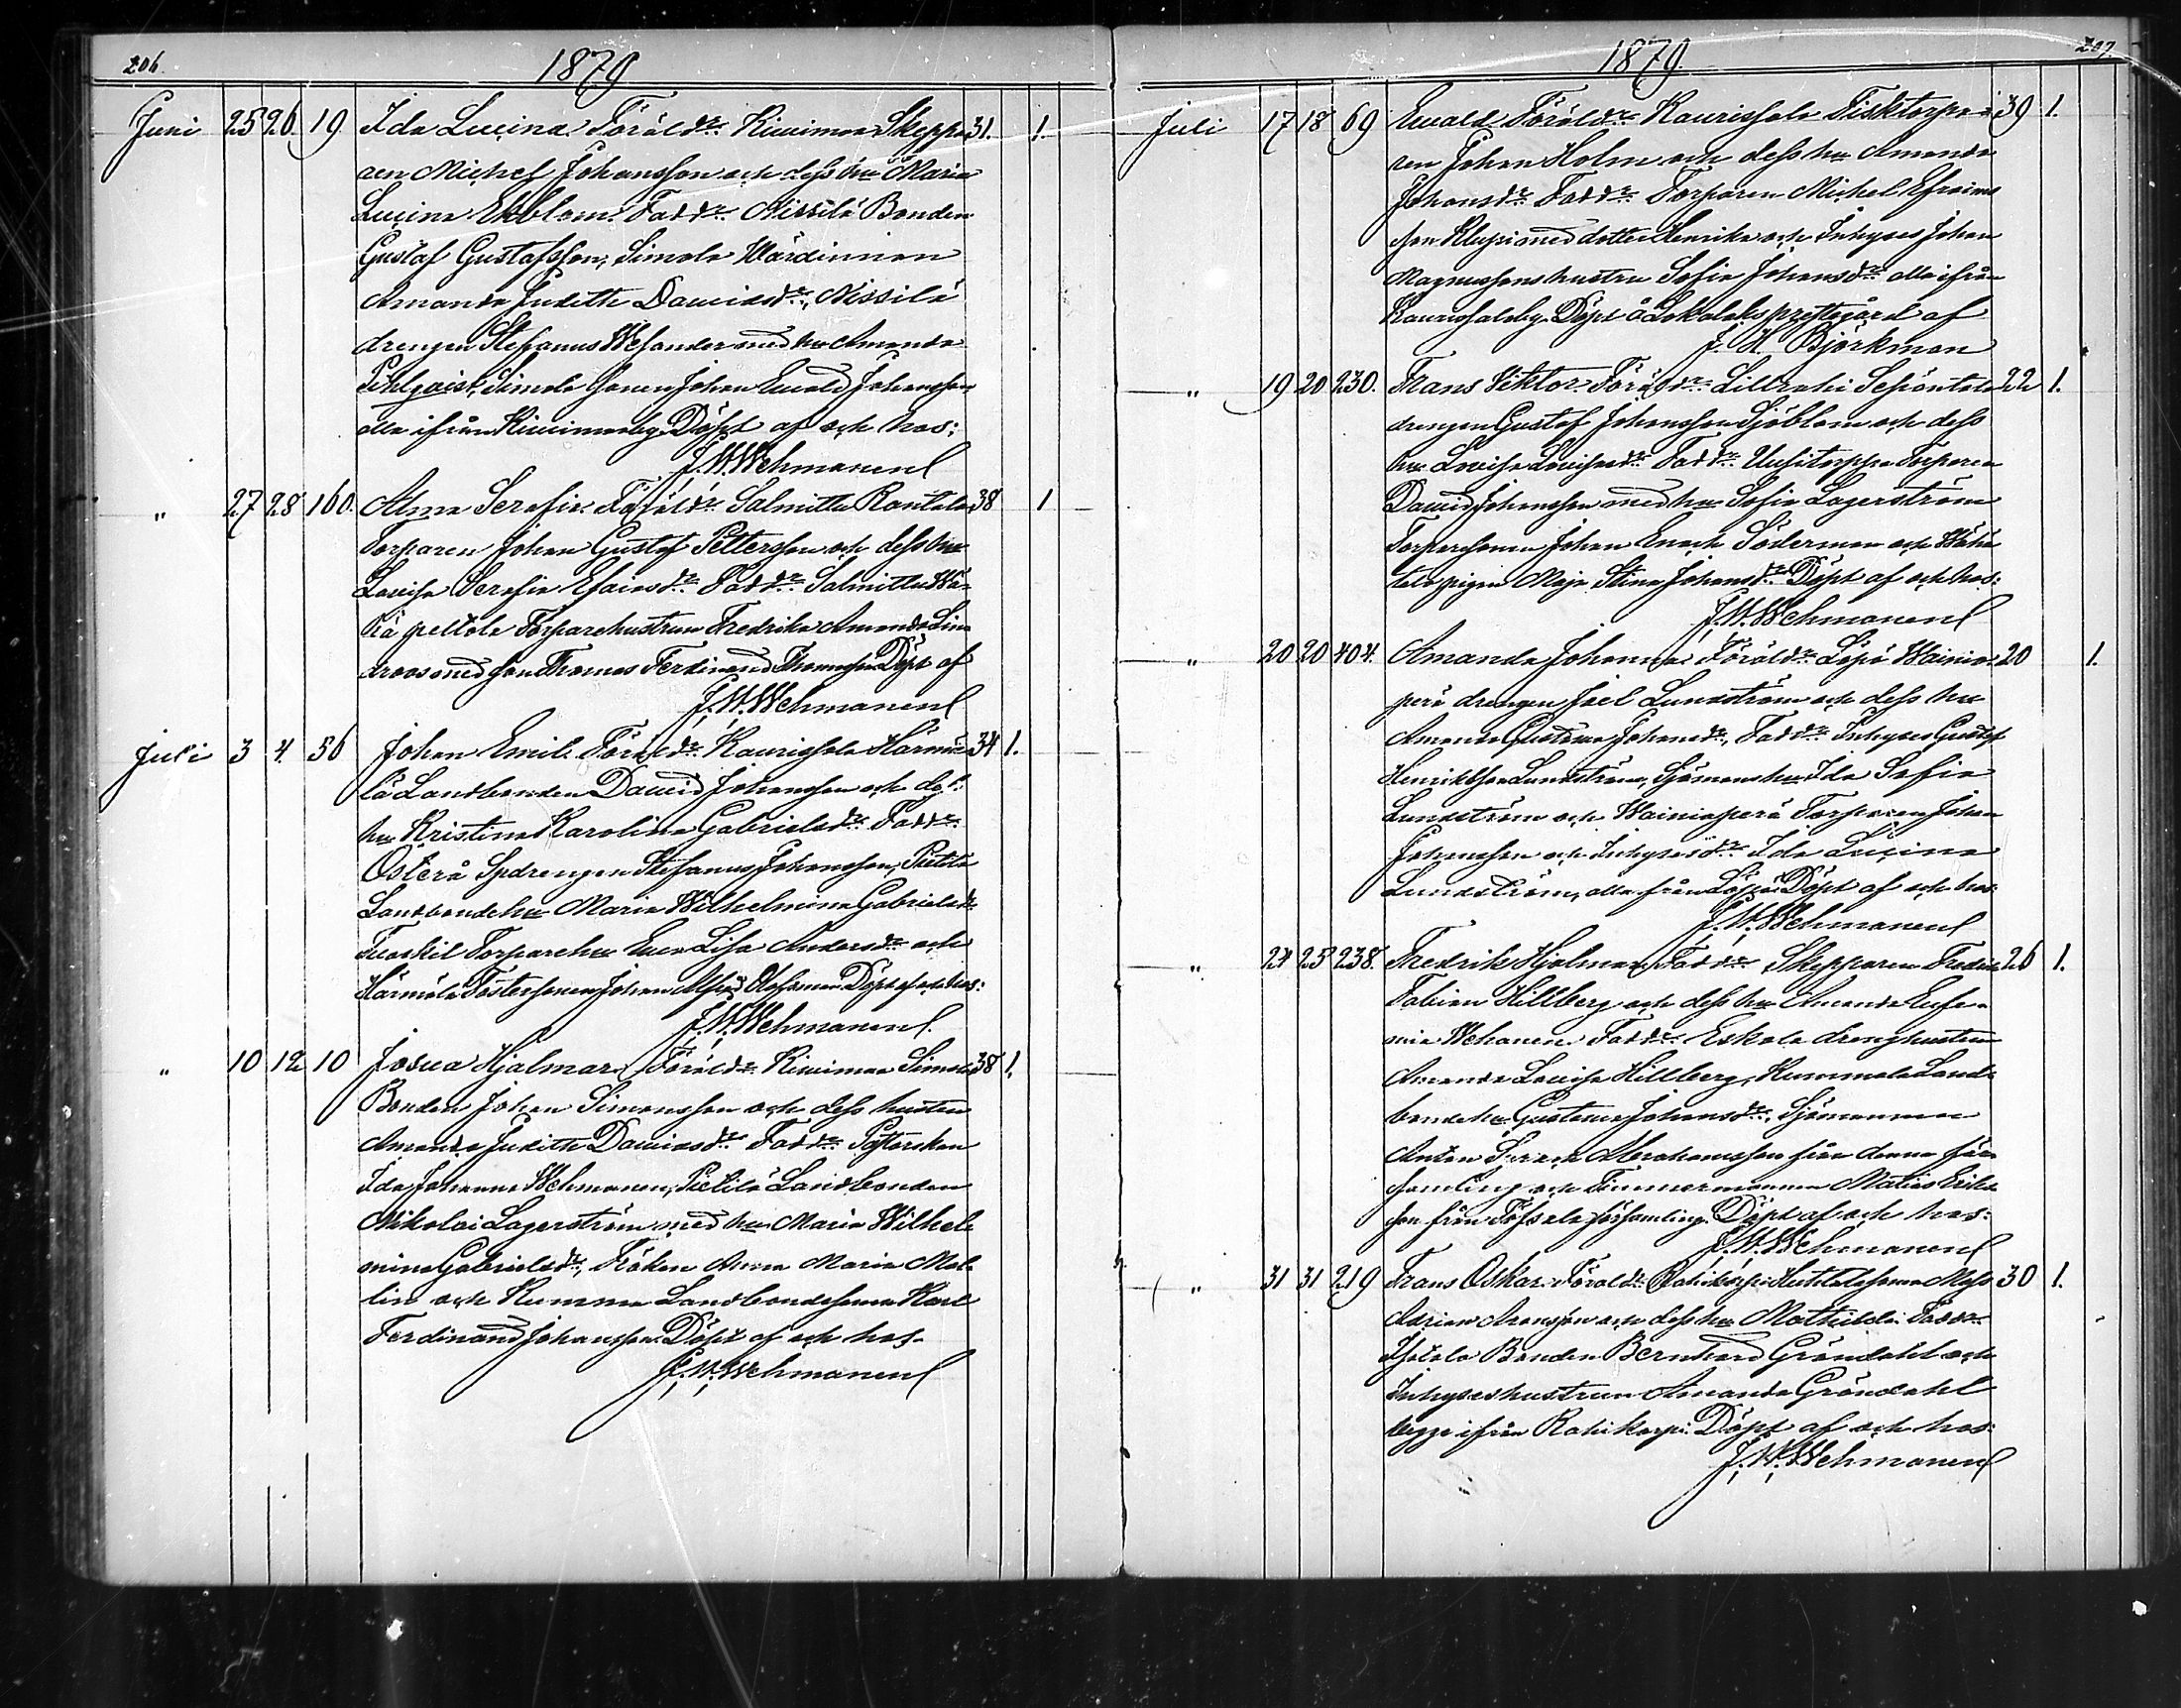 206.
1879
Juni 25 26. 19 Ida Lucina. Föräldr: Kiwimaa Skeppa 31. 1.
ren Michel Johansson och dess hu Maria
Lucina Ekblom. Faddr: Nissilä Bonden
Gustaf Gustafsson, Simola Wärdinnan
Amanda Judith Dawidsdr, Nissilä
drengen Stefanus Wesander med hu Amanda
Simola sonen Johan Ewald Johansson
alla ifrån Kiwimaa by. Döpt af och hos:
J. W. Wehmanen
" 27 28 160. Alma Serafia. Föräldr: Salmittu Rantala 38 1
Torparen Johan Gustaf Pettersson och dess hu
Lowisa Serafia Esaiasdr. Faddr: Salmittu Wä-
hä peltola Torparehustrun Fredrika Amanda Lin
droos med son Thomas Ferdinand Thomasson. Döpt af
J. W. Wehmanen
Juli 3 4. 56 Johan Emil. Föräldr: Kaurissala Härmä 34 1.
lä Landbonden Dawid Johansson och dess
hu Kristina Karolina Gabrielsdr. Faddr:
Österå Spdrengen Stefanus Johansson, Pietilä
Landbondehu Maria Wilhelmina Gabrielsdr
Torparehu Ewa Lisa Andersdr och
Härmälä Fostersonen Johan Alfred Döpt af och hos:
J. W. Wehmanen.
" 10 12 10 Josua Hjalmar. Föräldr: Kiwimaa Simola 38 1.
Bonden Johan Simonsson och dess hustru
Amanda Judith Dawidsdr. Faddr: Pastorskan
Ida Johanna Wehmanen, Pietilä Landbonden
Nikolai Lagerström med hu Maria Wilhel-
mina Gabrielsdr, Fröken Anna Maria Mel-
lin och Kumma Landbondesonen Karl
Ferdinand Johansson. Döpt af och hos.
J. W. Wehmanen
207.
1879
Juli 17 18 69 Ewald. Föräldr: Kaurissala Fisktorpa 39 1.
ren Johan Holm och dess hu Amanda
Johansdr. Faddr: Torparen Michel Efraims
son med dotter Henrika och Inhyses Johan
Magnussons hustru Sofia Johansdr alla ifrån
Kaurissala by. Döpt å Lokalaks prestgård af
J. H. Björkman
" 19 20 230. Frans Viktor. Föräldr: Lillrahi Sepäntalo 22 1.
drengen Gustaf Johansson Sjöblom och dess
hu Lowisa Faddr: Uusitorppa Torparen
Dawid Johansson med hu Sofia Lagerström
Torparesonen Johan Enok Söderman och Wähä
talo pigan Maja Stina Johansdr. Döpt af och hos:
J. W. Wehmanen
" 20 20 404. Amanda Johanna. Föräldr: Lepä Wainion 20 1.
perä drengen Joel Lundström och dess hu
Amanda Gustawa Johansdr, Faddr: Inhyses Gustaf
Henriksson Lundström, Sjömans hu Ida Sofia
Lundström och Wainiaperä Torparen Johan
Johansson och Inhysesdr Ida Lucina
Lundström, alla från Lepä. Döpt af och hos:
J. W. Wehmanen
" 24 25 238. Fredrik Hjalmar. Faddr: Skepparen Fredrik 26 1.
Fabian Hillberg och dess hu Amanda Eufe-
mia Wehanen. Faddr: Eskola drenghustrun
Amanda Lowisa Hillberg, Kummala Land-
bondehu Gustawa Johansdr, Sjömannen
Anton Abrahamsson från denna för-
samling och Timmermannen Matias Eriks
son från Töfsala församling. Döpt af och hos:
J. W. Wehmanen
" 31 31 219 Frans Oskar. Föräldr: Rahikorpi 30 1.
Adrian Aronsson och dess hu Mathilda. Faddr:
Isotalo Bonden Bernhard Gröndahl och
Inhyseshustrun Amanda Gröndahl
begge ifrån Rahikorpi. Döpt af och hos:
J. W. Wehmanen